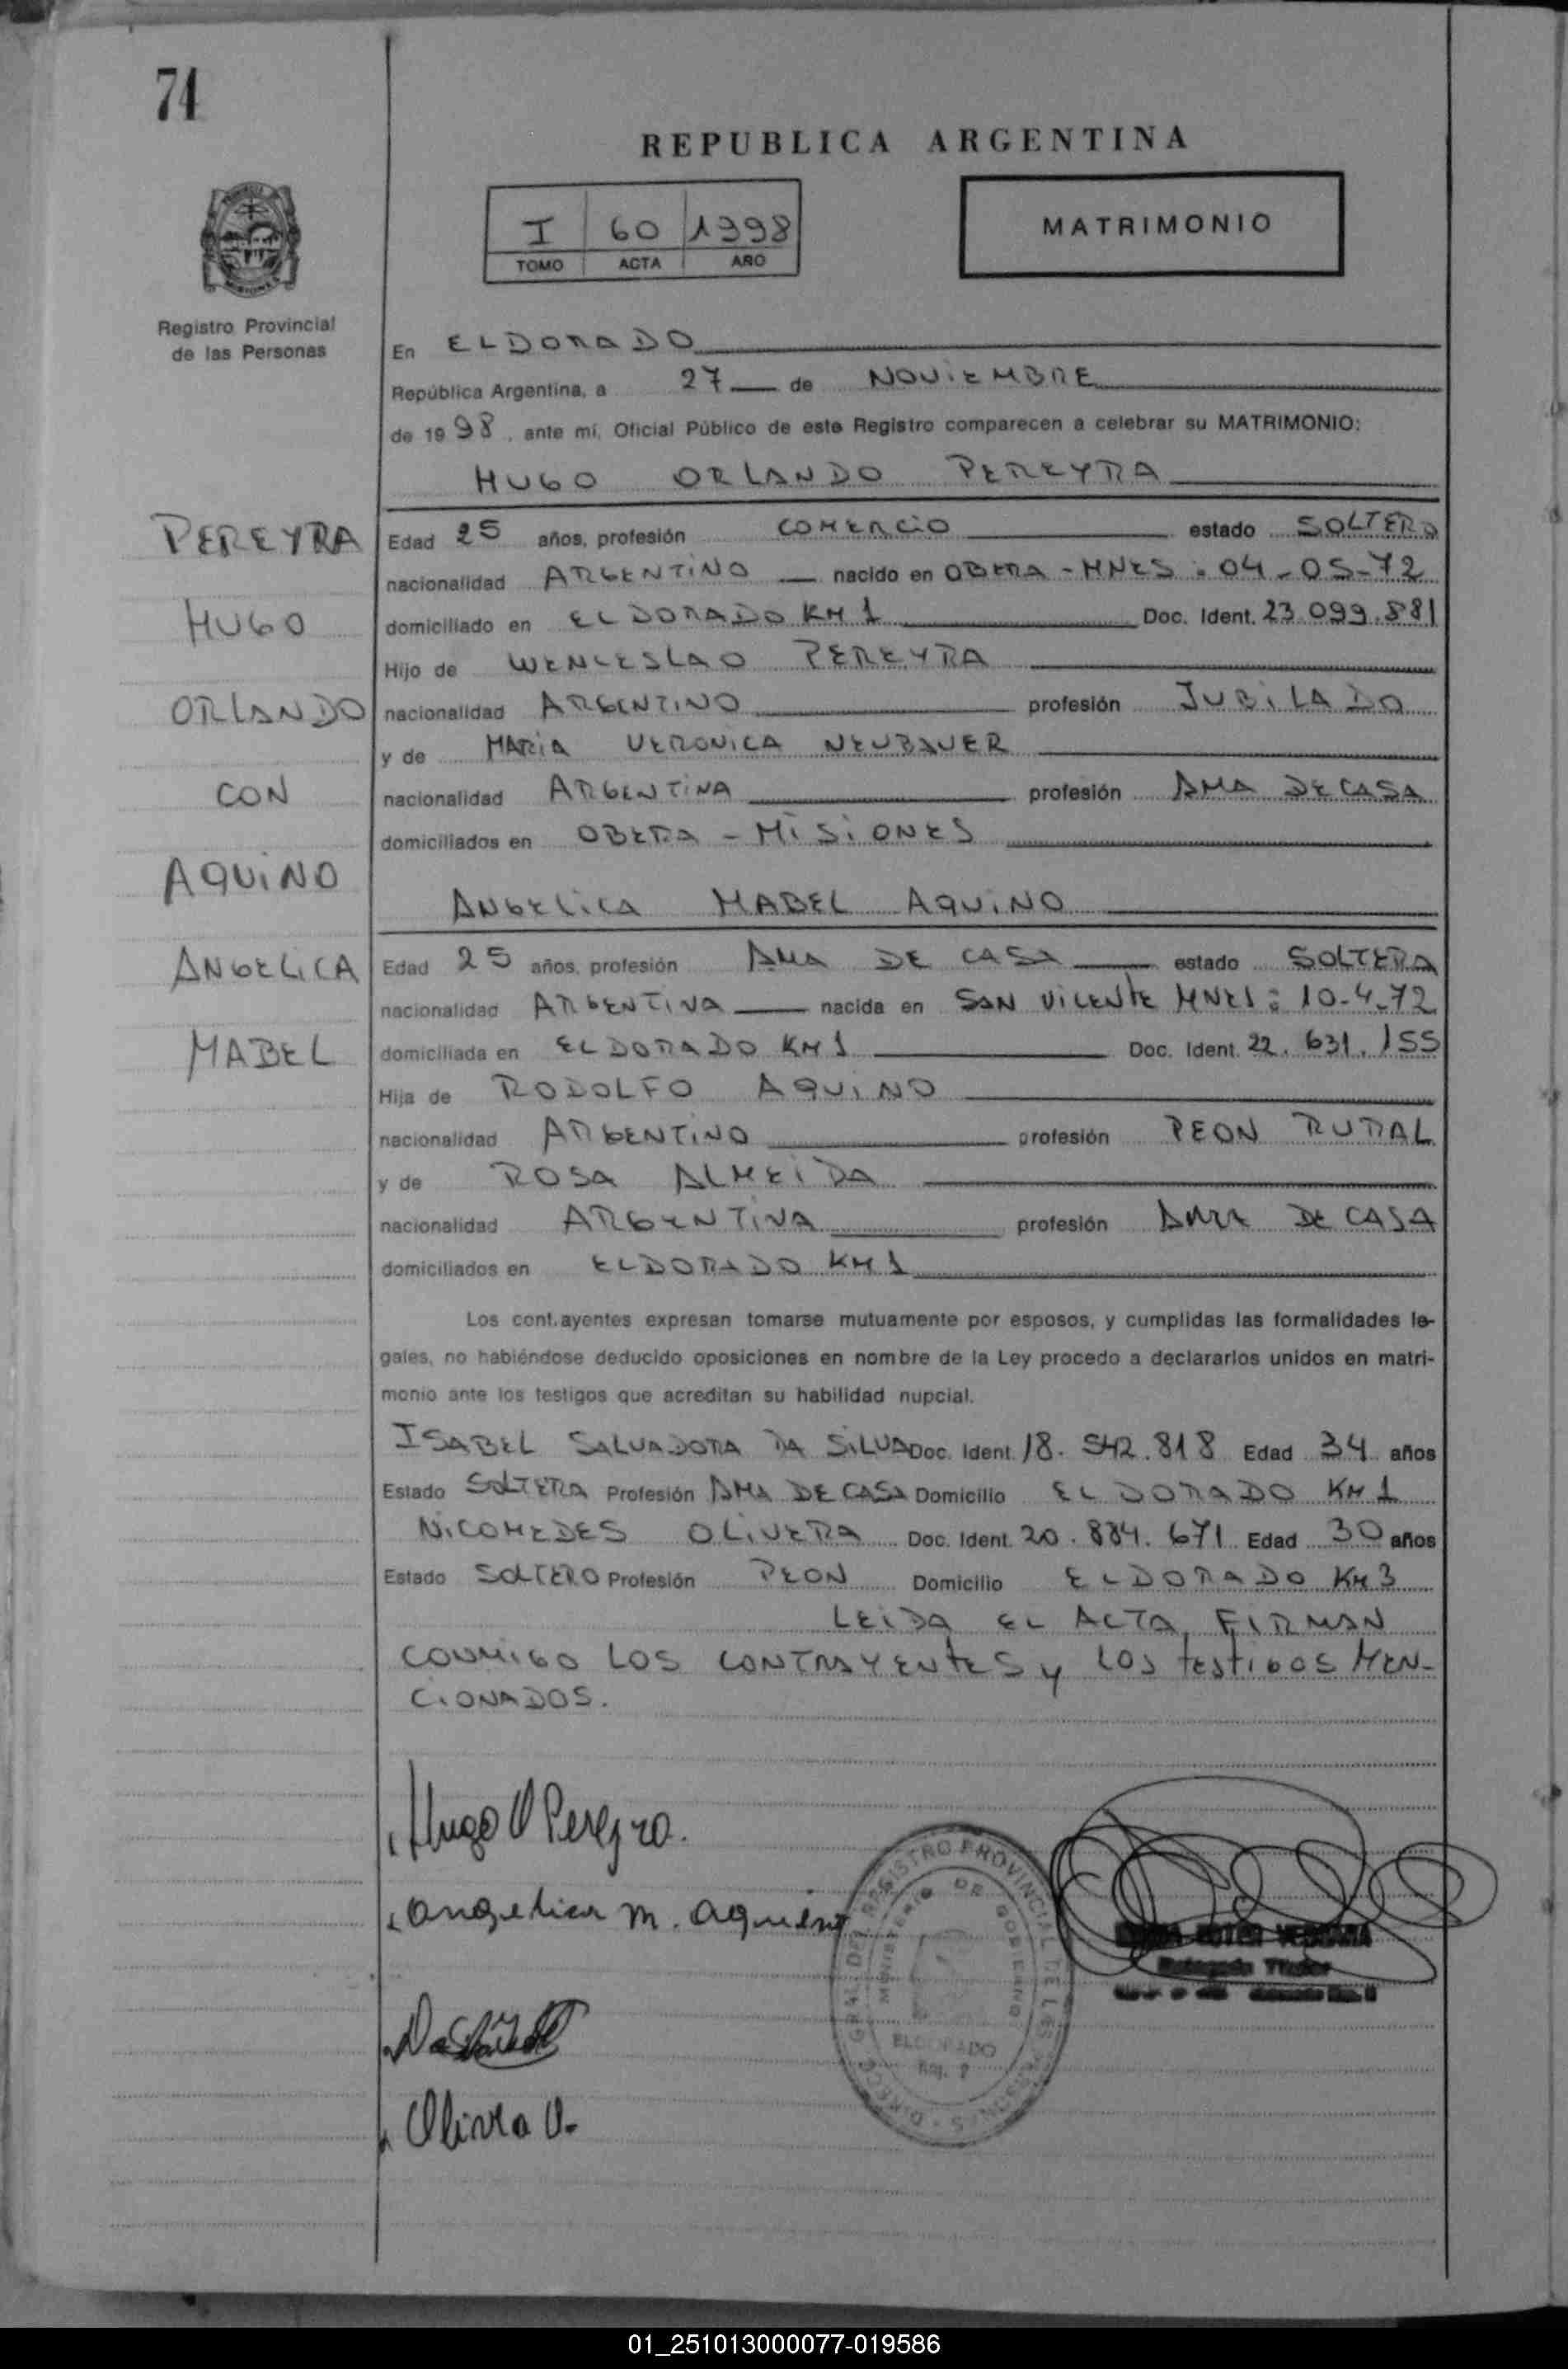 74
REPUBLICA ARGENTINA
I 60 1998
TOMO ACTA AÑO
MATRIMONIO
Registro Provincial
de las Personas
En ELDORADO
República Argentina, a 27 de NOVIEMBRE
de 1998, ante mí, Oficial Público de este Registro comparecen a celebrar su MATRIMONIO:
HUGO ORLANDO PEREYRA
PEREYRA
HUGO
ORLANDO
CON
AQUINO
ANGELICA
MABEL
Edad 25 años, profesión COMERCIO estado SOLTERO
nacionalidad ARGENTINO nacido en OBERA - MNES. 04-05-72
domiciliado en ELDORADO KM 1 Doc. Ident. 23.099.881
Hijo de WENCESLAO PEREYRA
nacionalidad ARGENTINO profesión JUBILADO
y de MARIA VERONICA NEUBAUER
nacionalidad ARGENTINA profesión AMA DE CASA
domiciliados en OBERA - MISIONES
ANGELICA MABEL AQUINO
Edad 25 años, profesión AMA DE CASA estado SOLTERA
nacionalidad ARGENTINA nacida en SAN VICENTE MNES: 10-4-72
domiciliada en ELDORADO KM 1 Doc. Ident. 22.631.155
Hija de RODOLFO AQUINO
nacionalidad ARGENTINO profesión PEON RURAL
y de ROSA ALMEIDA
nacionalidad ARGENTINA profesión AMA DE CASA
domiciliados en ELDORADO KM 1
Los cont.ayentes expresan tomarse mutuamente por esposos, y cumplidas las formalidades le-
gales, no habiéndose deducido oposiciones en nombre de la Ley procedo a declararlos unidos en matri-
monio ante los testigos que acreditan su habilidad nupcial.
ISABEL SALVADORA DA SILVA Doc. Ident. 18.542.818 Edad 34 años
Estado SOLTERA Profesión AMA DE CASA Domicilio ELDORADO KM 1
NICOMEDES OLIVERA Doc. Ident. 20.884.671 Edad 30 años
Estado SOLTERO Profesión PEON Domicilio ELDORADO KM 3
LEIDA EL ACTA, FIRMAN
CONMIGO LOS CONTRAYENTES y LOS testigos MEN-
CIONADOS.
Hugo O Pereyra.
Angelica M. Aquino
DIRECC. GRAL. DEL REGISTRO PROVINCIAL DE LAS PERSONAS
MINISTERIO DE GOBIERNO
ELDORADO
Titular
01_251013000077-019586